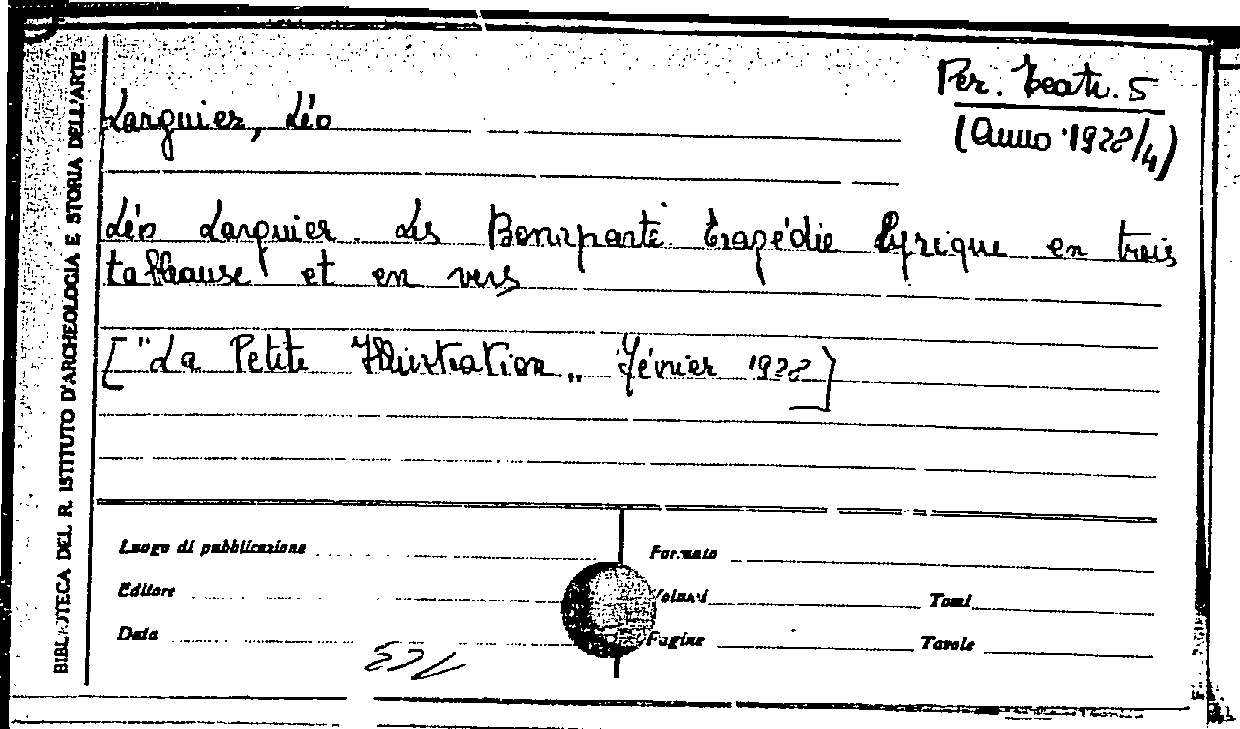 Per. Teatr. 5
(Anno 1928/4)
Larguier, Léo
Léo Larguier. Les Bonaparte tragédie lyrique en trois
tableause et en vers
["La Petite Illustration„ Février 1928]
BIBLIOTECA DEL R. ISTITUTO D'ARCHEOLOGIA E STORIA DELL'ARTE
Luogo di pubblicazione
Formato
Editore
Volumi
Tomi
Data
Pagine
Tavole